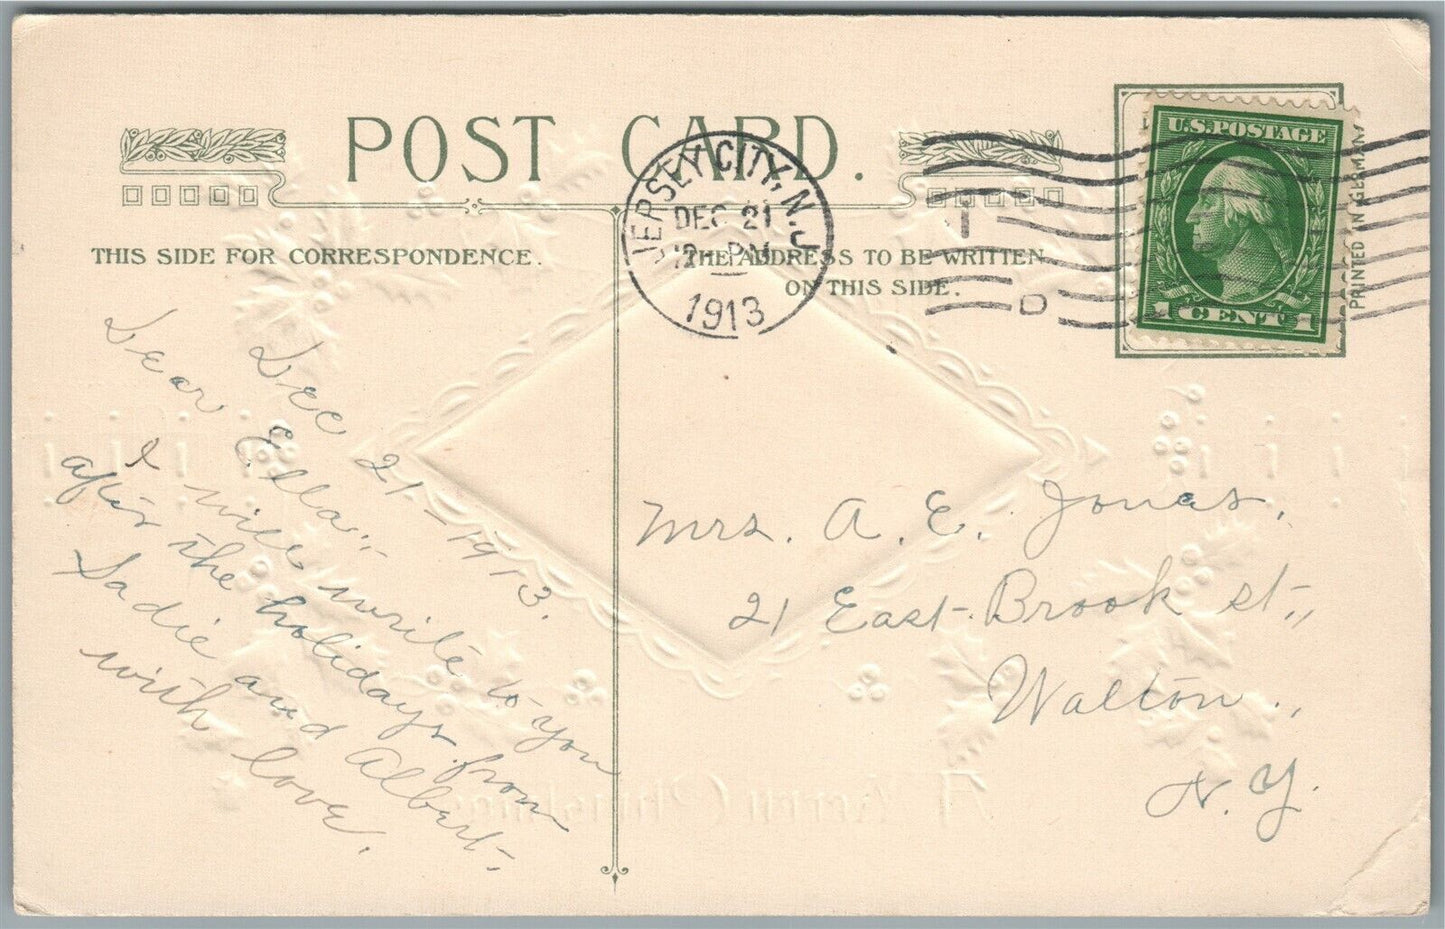 POST CARD.
THIS SIDE FOR CORRESPONDENCE.
THE ADDRESS TO BE WRITTEN
ON THIS SIDE.
JERSEY CITY, N.J.
DEC 21
12 - PM
1913
T
D
U.S. POSTAGE
1 CENT 1
PRINTED IN GERMANY
Dec 21 - 1913.
Dear Ella:-
I will write to you
after the holidays from
Sadie and Albert.
with love.
Mrs. A. E. Jonas.
21 East-Brook st.,
Walton.,
N. Y.
A Merry Christmas